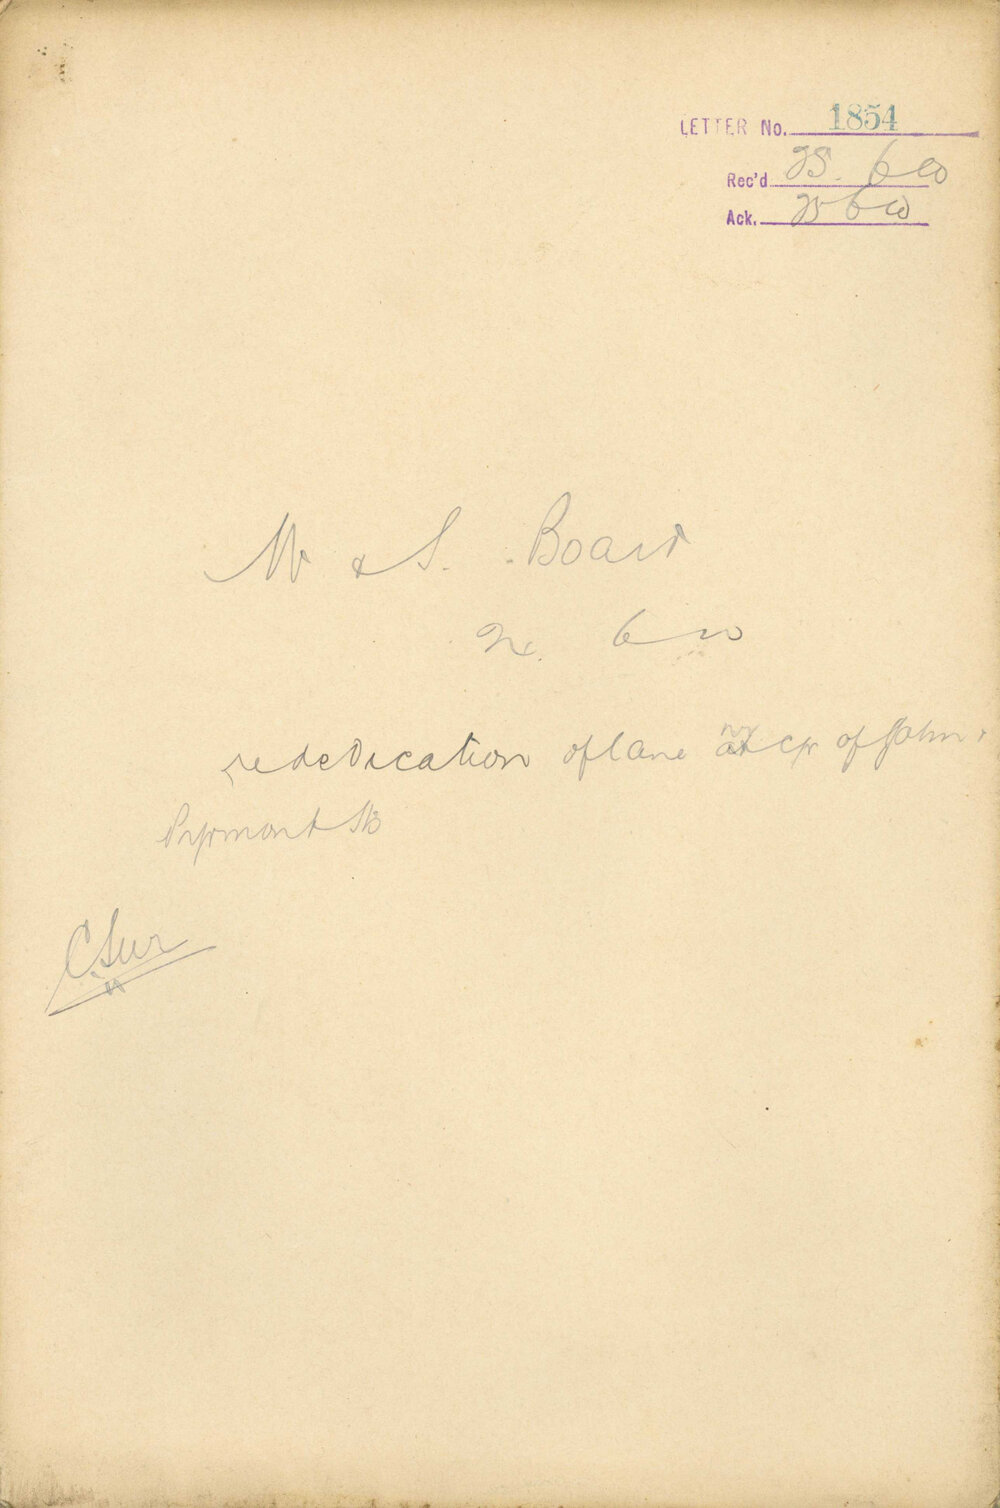 LETTER No. 1854
Rec'd 25. 6 00
Ack. 25 6 00
W & S. Board
6 00
re dedication of lane nr cor of John &
Pyrmont Sts
C. Sur